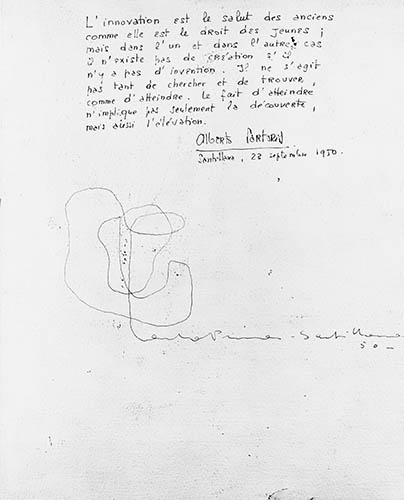 L'innovation est le salut des anciens
comme elle est le droit des jeunes ;
mais dans l'un et dans l'autre cas
il n'existe pas de création s'il
n'y a pas d'invention. Il ne s'agit
pas tant de chercher et de trouver,
comme d'atteindre. Le fait d'atteindre
n'implique pas seulement la découverte,
mais aussi l'élévation.
Alberto Sartoris
Santillana, 23 septembre 1950.
Santillana
50-